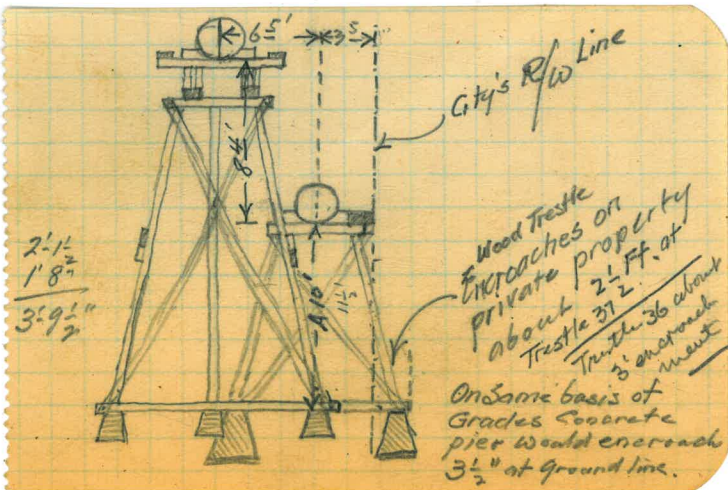 6 5' 3 5"
City's R/W Line
84'
2'-1 1/2
1' 8"
3'-9 1/2"
A10'
11 5'
Wood Trestle
Encroaches on
private property
about 2 1/2 Ft. at
Trestle 37
Trestle 36 about
3' encroach
ment
On Same basis of
Grades Concrete
pier would encroach
3 1/2" at ground line.